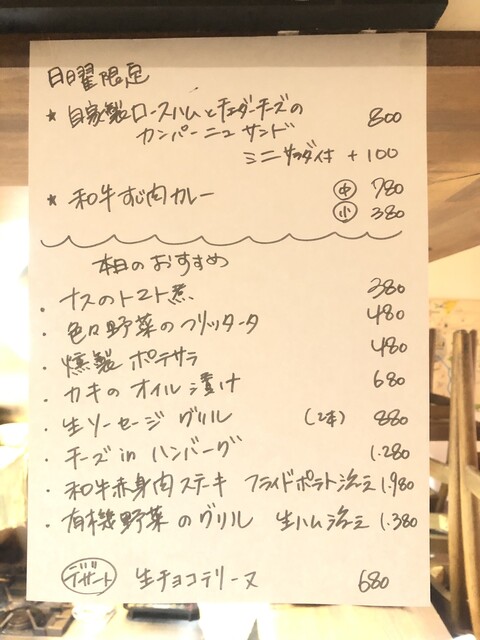 日曜限定
★ 自家製ロースハムとチェダーチーズの 800
カンパーニュ サンド
ミニサラダ付 +100
★ 和牛すじ肉カレー ㊥ 780
㊙小 380
本日のおすすめ
・ナスのトマト煮 380
・色々野菜のフリッタータ 480
・燻製 ポテサラ 480
・カキの オイル漬け 680
・生ソーセージ グリル (2本) 880
・チーズ in ハンバーグ 1.280
・和牛赤身肉ステキ フライドポテト添え 1.980
・有機野菜のグリル 生ハム添え 1.380
デザート 生チョコテリーヌ 680